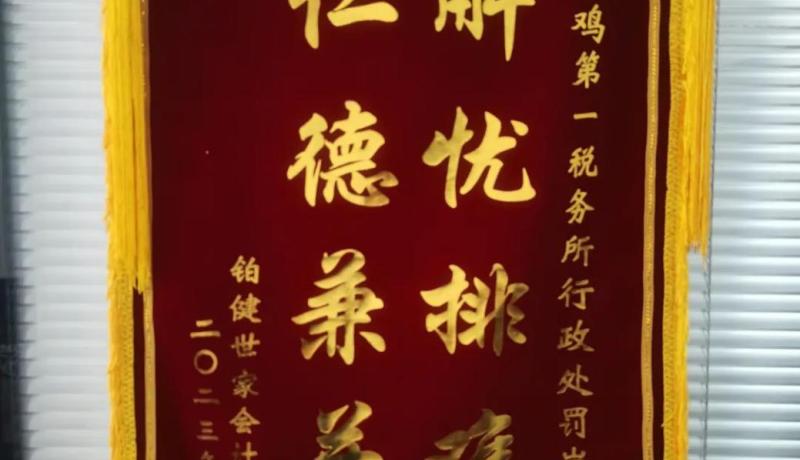 鸡第一税务所行政处罚
解忧排难
德兼
铂健世家会计
二〇二三年